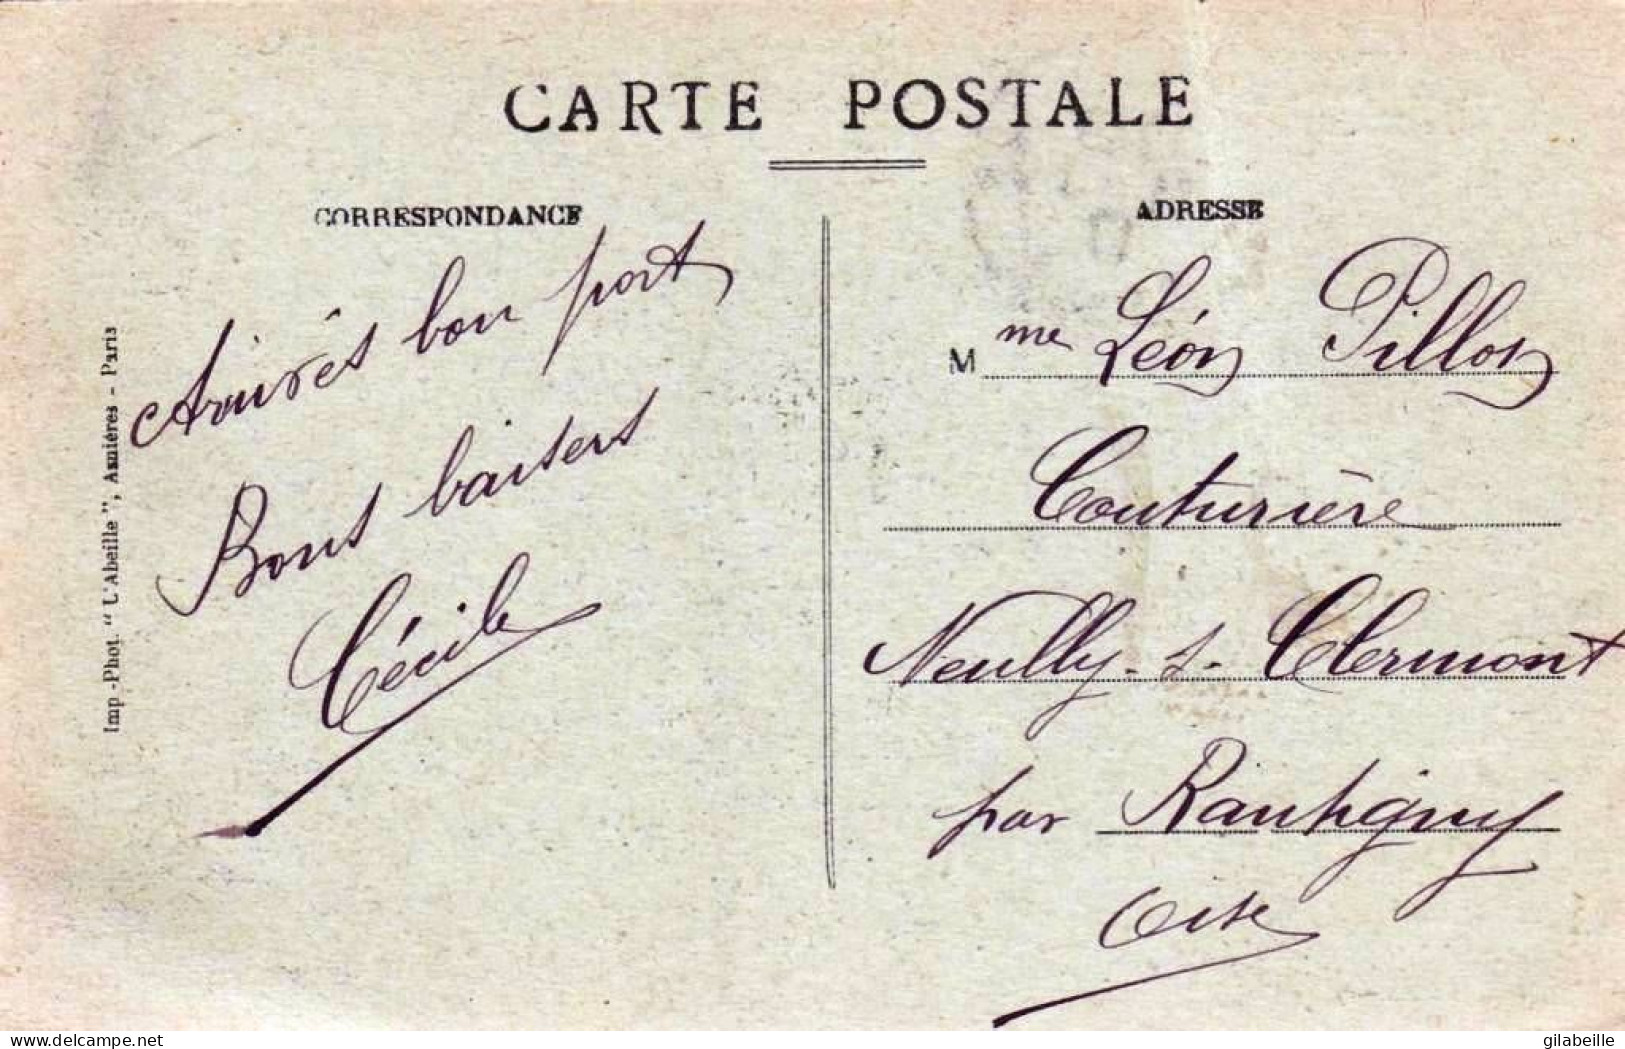 CARTE POSTALE
CORRESPONDANCE
Arrivés bon port
Bons baisers
Cécile
Imp-Phot. "L'Abeille", Asnières - Paris
ADRESSE
Mme Léon Pillon
Couturière
Neuilly-s-Clermont
par Rantigny
Oise
www.delcampe.net
gilabeille